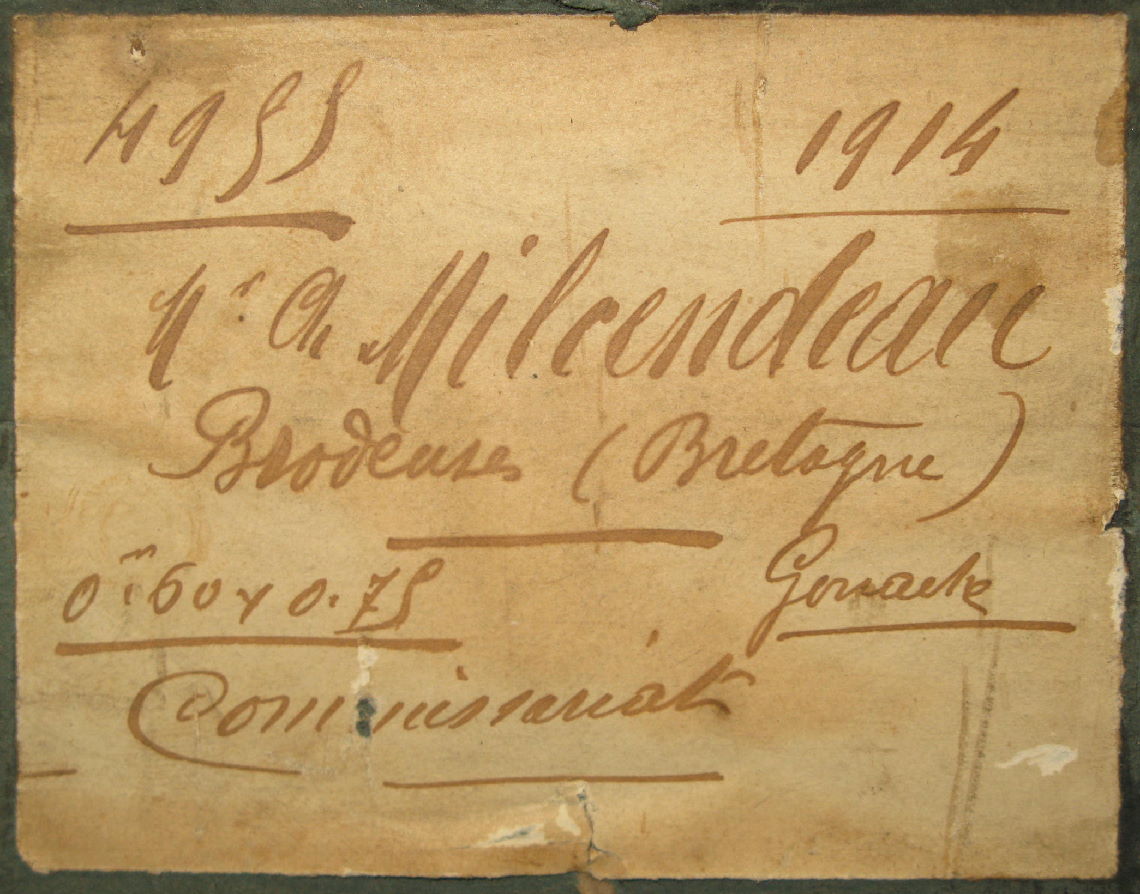 4955 1914
Mr. Ch Milcendeau
Brodeuses (Bretagne)
0m.60 x 0.75 Gouache
Commissariat